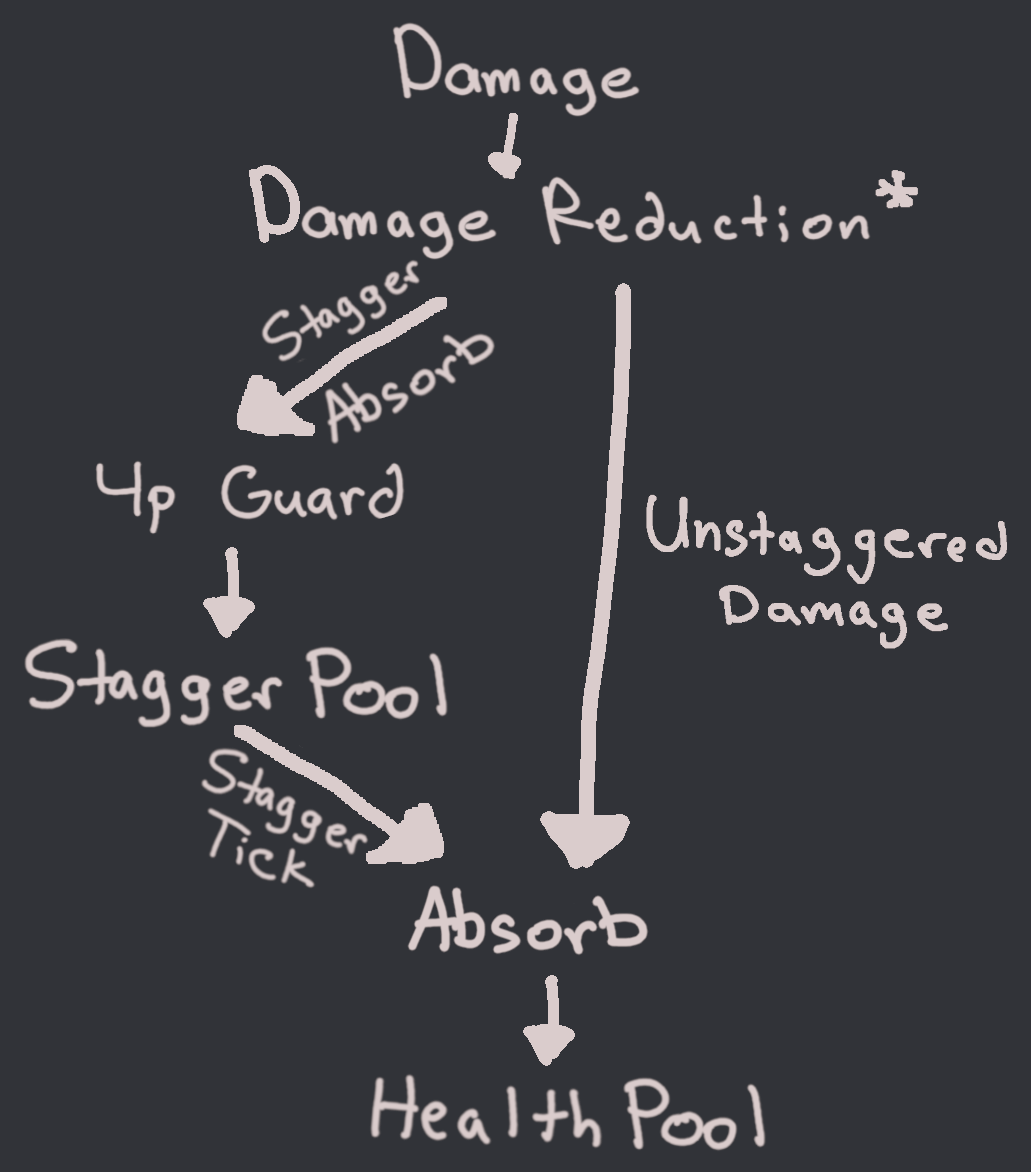 Damage
Damage Reduction*
Stagger
Absorb
4p Guard
Unstaggered
Damage
Stagger Pool
Stagger
Tick
Absorb
Health Pool